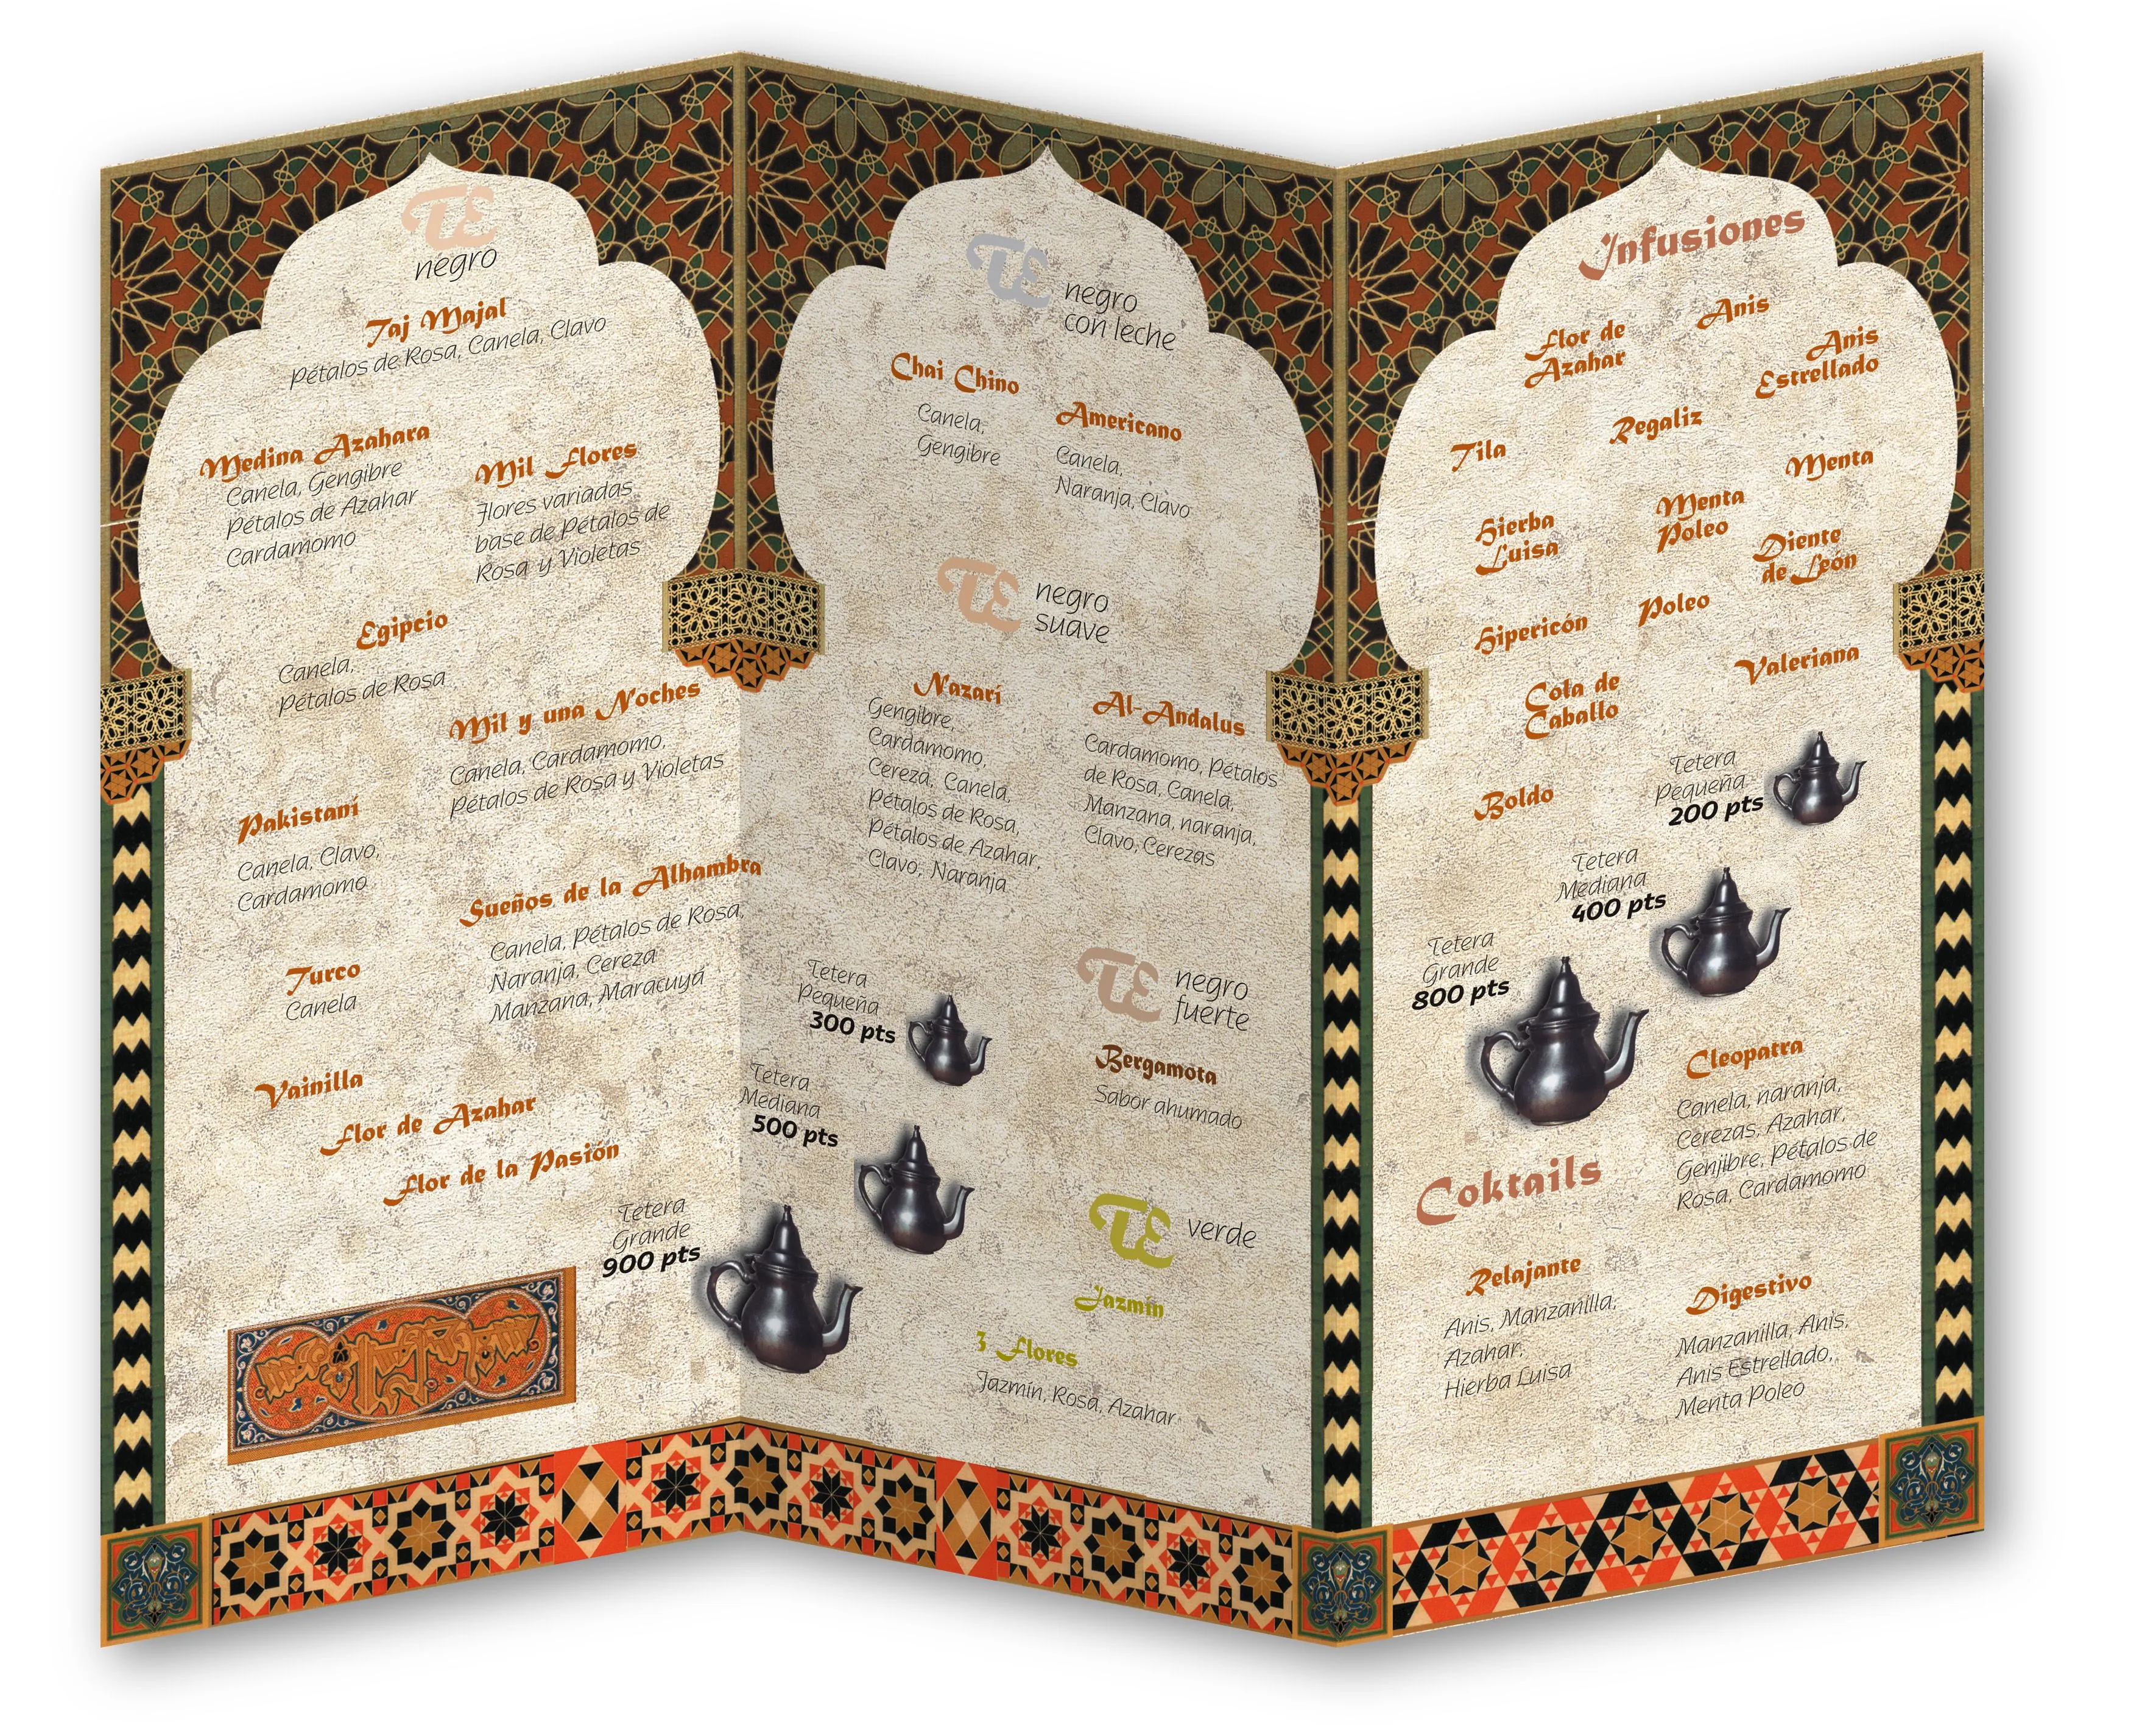 TE
negro
Taj Majal
Pétalos de Rosa, Canela, Clavo
Medina Azahara
Canela, Gengibre
Pétalos de Azahar
Cardamomo
Mil Flores
Flores variadas
base de Pétalos de
Rosa y Violetas
Egipcio
Canela,
Pétalos de Rosa
Mil y una Noches
Canela, Cardamomo,
Pétalos de Rosa y Violetas
Pakistaní
Canela, Clavo,
Cardamomo
Sueños de la Alhambra
Canela, Pétalos de Rosa,
Naranja, Cereza
Manzana, Maracuyá
Turco
Canela
Vainilla
Flor de Azahar
Flor de la Pasión
Tetera
Grande
900 pts
TE
negro
con leche
Chai Chino
Canela,
Gengibre
Americano
Canela,
Naranja, Clavo
TE
negro
suave
Nazarí
Gengibre,
Cardamomo,
Cereza, Canela,
Pétalos de Rosa,
Pétalos de Azahar,
Clavo, Naranja
Al-Andalus
Cardamomo, Pétalos
de Rosa, Canela,
Manzana, naranja,
Clavo, Cerezas
Tetera
Pequeña
300 pts
Tetera
Mediana
500 pts
TE
negro
fuerte
Bergamota
Sabor ahumado
TE
verde
Jazmín
3 Flores
Jazmín, Rosa, Azahar
Infusiones
Flor de
Azahar
Anis
Anis
Estrellado
Tila
Regaliz
Menta
Hierba
Luisa
Menta
Poleo
Diente
de León
Hipericón
Poleo
Valeriana
Cola de
Caballo
Boldo
Tetera
Pequeña
200 pts
Tetera
Mediana
400 pts
Tetera
Grande
800 pts
Coktails
Cleopatra
Canela, naranja,
Cerezas, Azahar,
Genjibre, Pétalos de
Rosa, Cardamomo
Relajante
Anis, Manzanilla,
Azahar,
Hierba Luisa
Digestivo
Manzanilla, Anis,
Anis Estrellado,
Menta Poleo